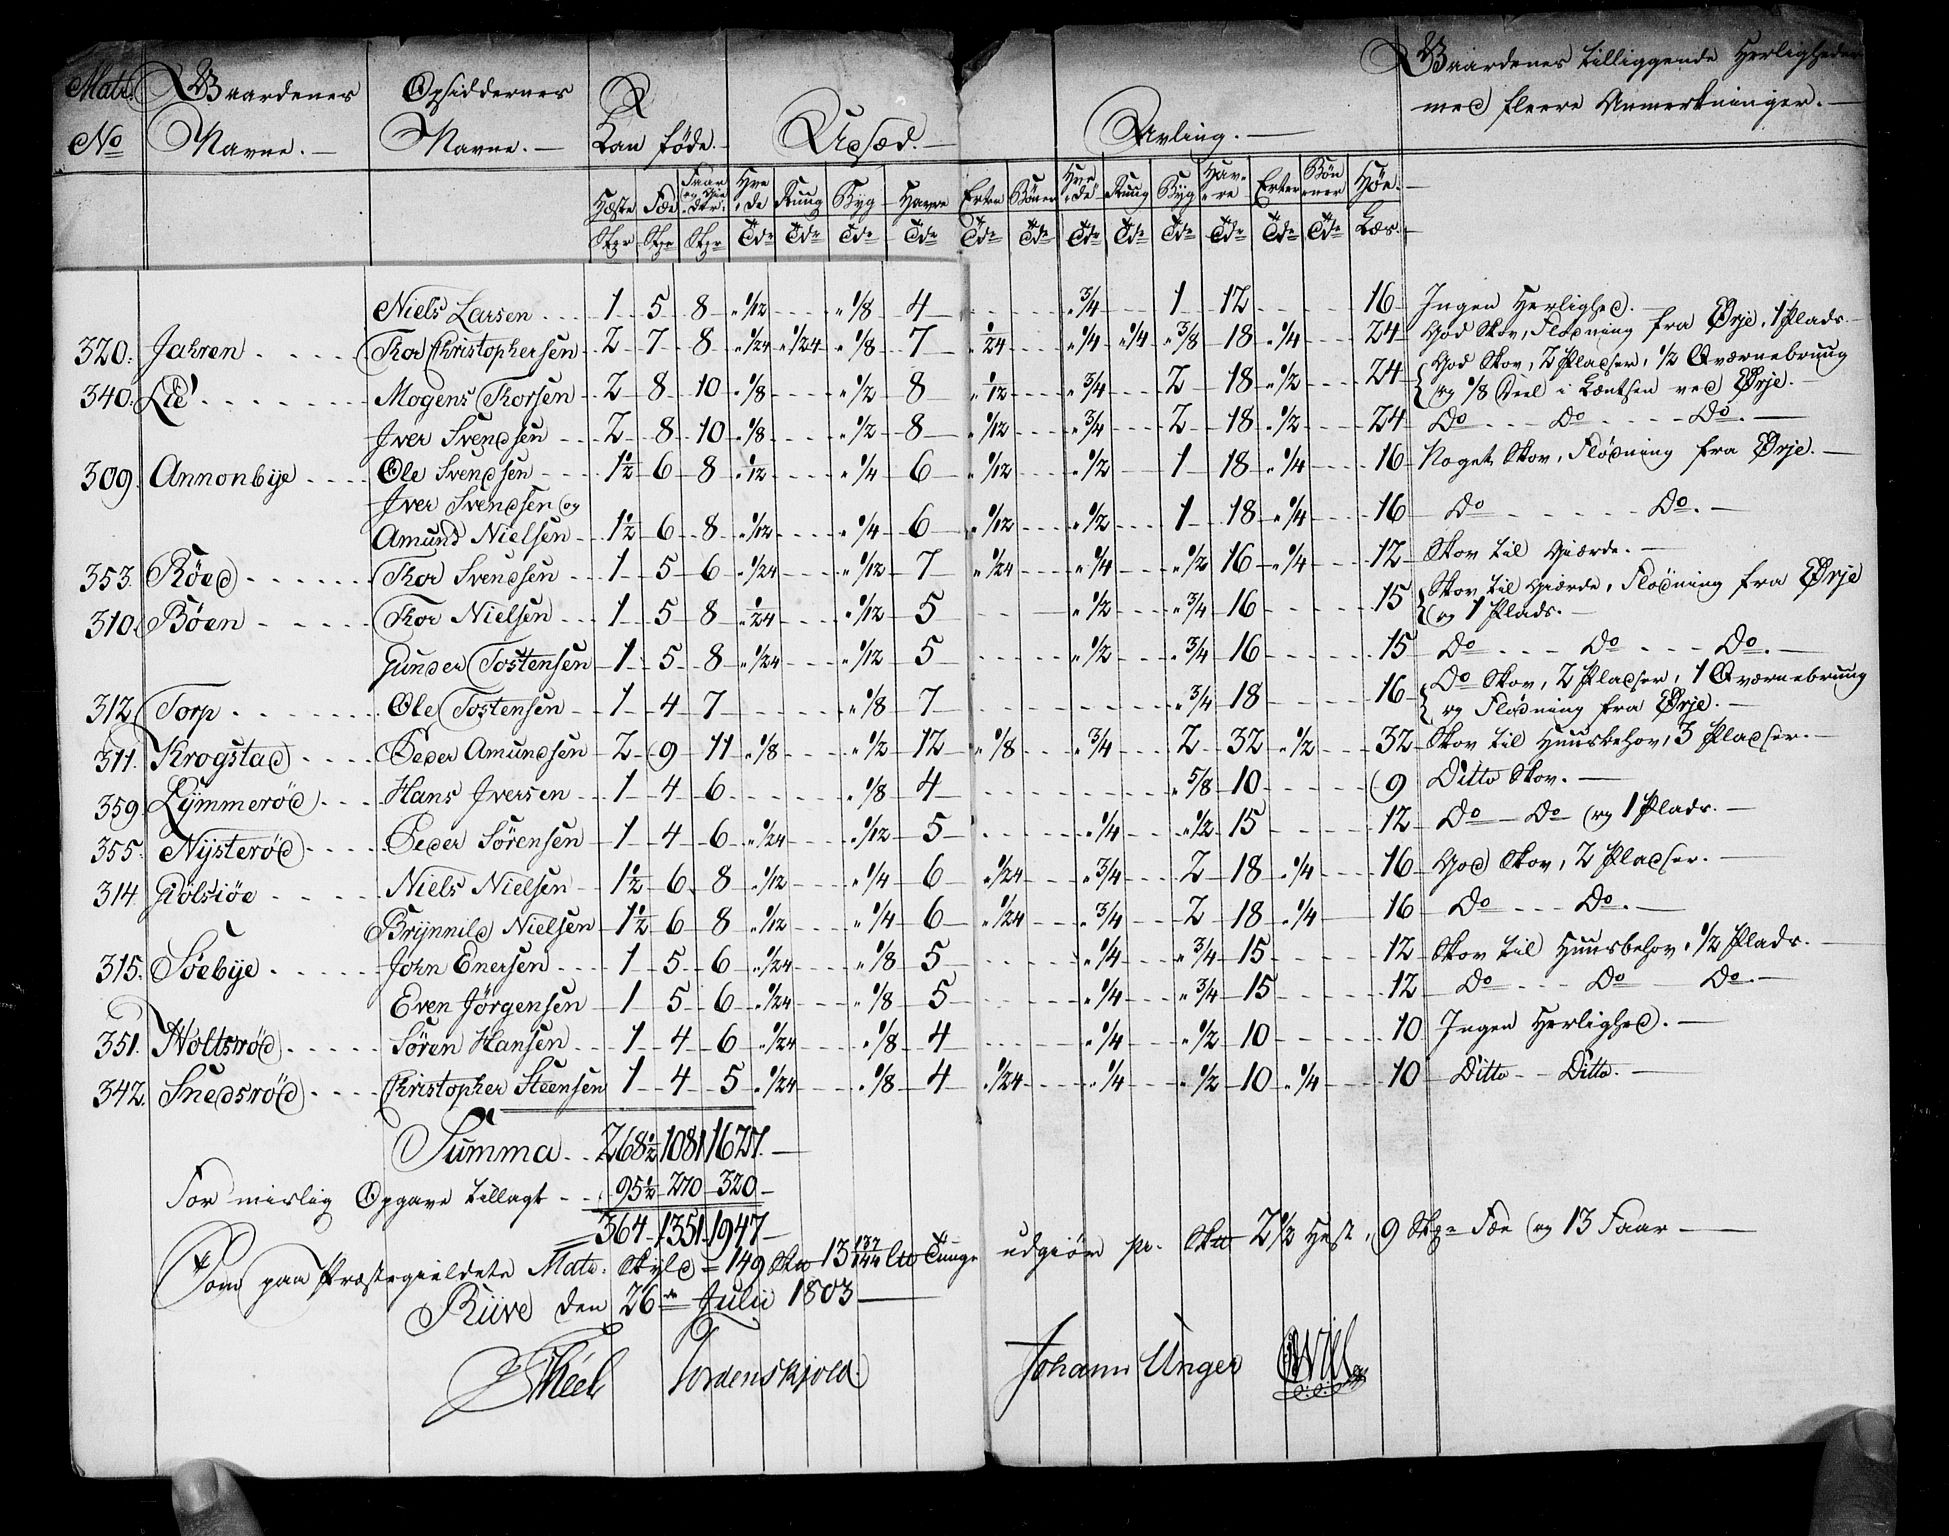 Matr. Gaardenes Opsiddernes Kan føde. Udsæd. Avling. Gaardenes tilliggende Herligheder
No Navne. Navne. med fleere Anmerkninger.
Hæste Fæe Faar Hvede Rung Byg Havre Erter Bøner Hvede Rung Byg Havre Erter Bønner Høe
Tdr Tdr Tdr Tdr Tdr Tdr Tdr Tdr Tdr Tdr Tdr Tdr Læs
Niels Larsen 1 5 8 1/12 1/8 4 3/4 1 12 16 Ingen Herlighed.
320. Jahren Thor Christophersen 2 7 8 1/24 1/24 1/8 7 1/24 1/4 1/4 3/8 18 1/4 24 God Skov, Flødning fra Ørje, 1 Plads
340. Lie Mogens Thorsen 2 8 10 1/8 1/2 8 1/12 3/4 2 18 1/2 24 God Skov, 2 Pladser, 1/2 Qværnebruug
og 1/8 Deel i Læntsen ved Ørje.
Iver Svendsen 2 8 10 1/8 1/2 8 1/12 3/4 2 18 1/2 24 Do Do Do.
309. Annonbÿe Ole Svendsen 1 1/2 6 8 1/12 1/4 6 1/12 1/2 1 18 1/4 16 Noget Skov, Flødning fra Ørje.
Iver Svendsen og
Amund Nielsen 1 1/2 6 8 1/12 1/4 6 1/12 1/2 1 18 1/4 16 Do Do.
353. Røed Thor Svendsen 1 5 6 1/24 1/12 7 1/24 1/4 1/2 16 1/4 12 Skov til Giærde.
310. Bøen Thor Nielsen 1 5 8 1/24 1/12 5 1/2 3/4 16 15 Skov til Giærde, Flødning fra Ørje
og 1 Plads.
Gunder Tostensen 1 5 8 1/24 1/12 5 1/2 3/4 16 15 Do Do Do.
312 Torp Ole Tostensen 1 4 7 1/8 7 3/4 18 16 Do Skov, 2 Pladser, 1 Qværnebruug
og Flødning fra Ørje.
311. Krogstad Peder Amundsen 2 9 11 1/8 1/2 12 1/8 3/4 2 32 1/2 32 Skov til Huusbehov, 3 Pladser.
359 Lÿmmerød Hans Iversen 1 4 6 1/8 4 5/8 10 9 Ditto Skov.
355. Nÿsterød Peder Sørensen 1 4 6 1/24 1/12 5 1/4 1/2 15 12 Do Do og 1 Plads.
314 Gølsiøe Niels Nielsen 1 1/2 6 8 1/12 1/4 6 1/24 3/4 2 18 1/4 16 God Skov, 2 Pladser.
Brÿnnild Nielsen 1 1/2 6 8 1/12 1/4 6 1/24 3/4 2 18 1/4 16 Do Do.
315. Søebÿe John Enersen 1 5 6 1/24 1/8 5 1/4 3/4 15 12 Skov til Huusbehov, 1/2 Plads.
Even Jørgensen 1 5 6 1/24 1/8 5 1/4 3/4 15 12 Do Do Do.
351. Holtsrød Søren Hansen 1 4 6 1/24 1/8 4 1/4 1/2 10 10 Ingen Herlighed.
342. Snedsrød Christopher Steensen 1 4 5 1/24 1/8 4 1/24 1/4 1/2 10 1/4 10 Ditto Ditto.
Summa 268 1/2 1081 1627.
For urigtig Opgave tillagt 95 1/2 270 320
364 1351 1947
Som paa Præstegieldets Matr. Skyld 149 Skd 13 137/144 Lb Tunge udgiør pr. Skd 2 1/2 Hest, 9 Fæe og 13 Faar
Riive den 26de Julii 1803
Theel Tordenskjold. Johann Unger Wiel